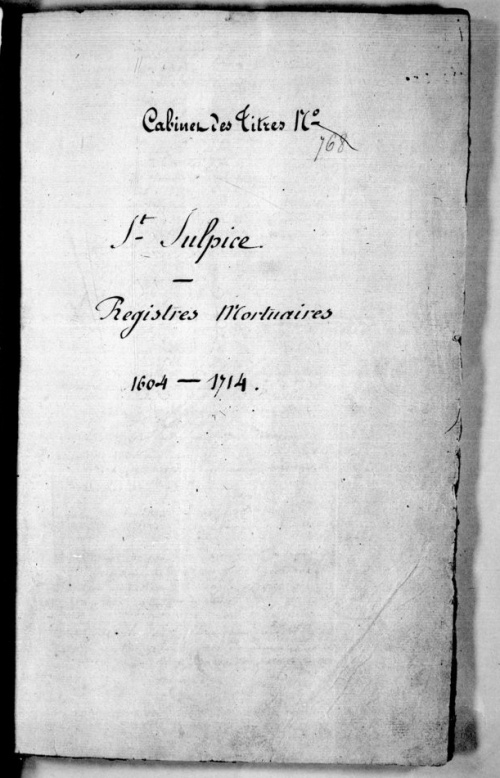 Cabinet des Titres No
768
St Sulpice.
—
Registres Mortuaires
1604 — 1714.